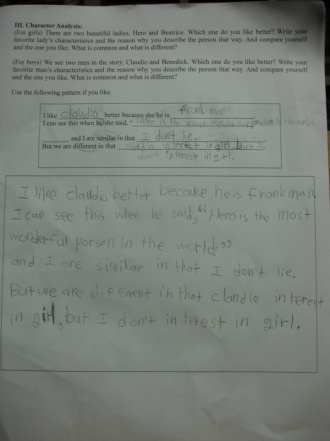 III. Character Analysis:
(For girls) There are two beautiful ladies, Hero and Beatrice. Which one do you like better? Write your
favorite lady's characteristics and the reason why you describe the person that way. And compare yourself
and the one you like. What is common and what is different?
(For boys) We see two men in the story, Claudio and Benedick. Which one do you like better? Write your
favorite man's characteristics and the reason why you describe the person that way. And compare yourself
and the one you like. What is common and what is different?
Use the following pattern if you like.
I like claudio better because she/he is frank man
I can see this when he/she said, "Hero is the most wonderful person in the world"
and I are similar in that I don't lie.
But we are different in that claudio interest in girl, but I
don't interest in girl.
I like claudio better because he is frank man
I can see this when he said, "Hero is the most
wonderful porson in the world."
and I are similar in that I don't lie.
But we are different in that claudio interest
in girl, but I don't interest in girl.